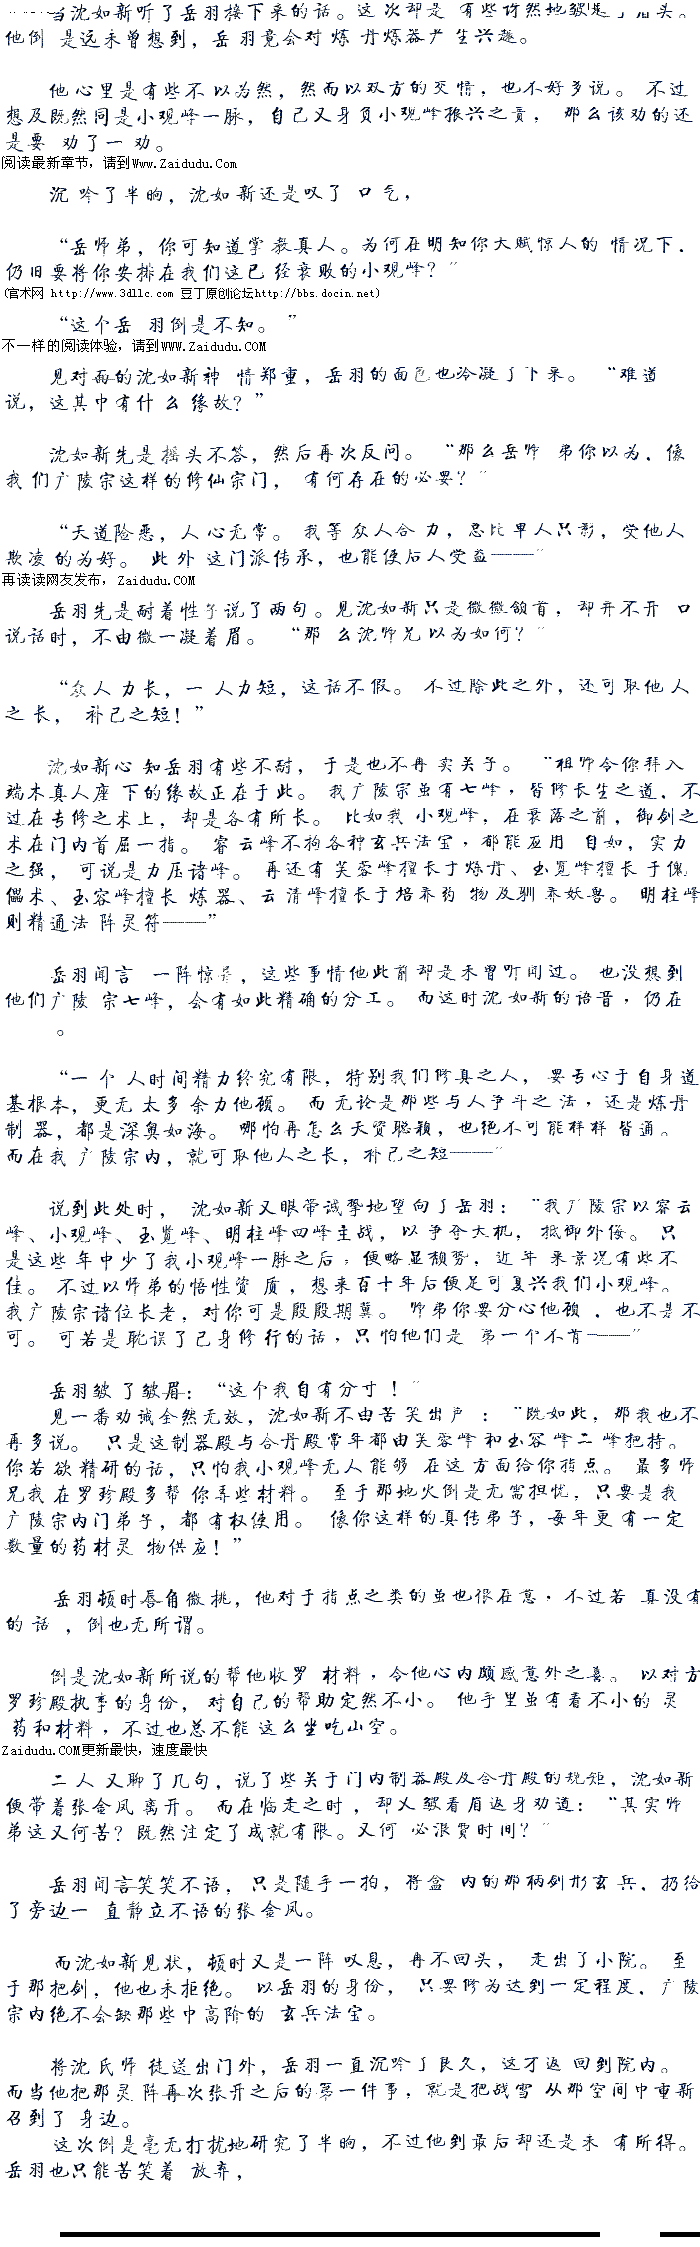 当沈如新听了岳羽接下来的话。这次却是 有些讶然地皱起了眉头。
他倒 是还未曾想到，岳羽竟会对炼 丹炼器产生兴趣。
他心里是有些不以为然，然而以双方的交情，也不好多说。 不过
想及既然同是小观峰一脉，自己又身负小观峰振兴之责， 那么该劝的还
是要 劝了一劝。
阅读最新章节，请到Www.Zaidudu.Com
沉 吟了半晌，沈如新还是叹了 口气，
“岳师弟，你可知道掌教真人。为何在明知你天赋惊人的 情况下．
仍旧要将你安排在我们这已 经衰败的小观峰？”
(官术网 http://www.3dllc.com 豆丁原创论坛http://bbs.docin.net)
“这个岳 羽倒是不知。 ”
不一样的阅读体验，请到WWW.ZAIDUDU.COM
见对面的沈如新神 情郑重，岳羽的面色也冷凝了下来。 “难道
说，这其中有什 么 缘故？”
沈如新先是摇头不答，然后再次反问。 “那么岳师 弟你以为．像
我 们广陵宗这样的修仙宗门， 有何存在的必要？”
“天道险恶，人心无常。 我等 众人合 力，总比单人只影，受他人
欺凌 的为好。 此外 这门派传承，也能使后人受益————”
再读读网友发布，Zaidudu.COM
岳羽先是耐着性子说了两句。见沈如新只是微微颔首，却并不开 口
说话时，不由微一凝着眉。 “那 么沈师兄以为如何？”
“众人 力长，一 人力短，这话不假。 不过除此之外，还可取他人
之长， 补己之短！”
沈如新心 知岳羽有些不耐，于是也不再 卖关子。 “祖师令你拜入
端木真人座 下的缘故正在于此。 我广陵宗虽有七峰，皆修长生之道．不
过在专修之术上，却是各有所长。 比如我 小观峰，在衰落之前，御剑之
术在门内首屈一指。 容 云峰不拘各种玄兵法宝，都能应用 自如，实力
之强， 可说是力压诸峰。 再还有 芙蓉峰擅长于炼丹、玉宽峰擅长 于傀
儡术、玉容峰擅长 炼器、云 清峰擅长于培养药 物及驯 养妖兽。 明柱峰
则精通法 阵灵符————”
岳羽闻言 一阵惊异，这些事情他此前却是未曾听闻过。 也没想到
他们广陵 宗七峰，会有如此精确的分工。 而这时沈如新的语音，仍在
。
“一 个 人时间精力终究有限，特别我们修真之人， 要专心于自身道
基根本，更无 太多余力他顾。 而 无论是那些与人争斗之法，还是炼丹
制 器，都是深奥如海。 哪怕再怎么天资聪颖，也绝不可能样样 皆通。
而在我 广陵宗内，就可取他人之长，补己之短————”
说到此处时， 沈如新又眼带诚挚地望向了岳羽：“我广陵宗以容云
峰、小观峰、玉宽峰、明柱峰四峰主战，以争夺天机，抵御外侮。 只
是这些 年中少了我小观峰一脉之后，便略显颓势，近 年 来景况有些不
佳。 不过以师弟的悟性资 质，想来百十年后便足可复兴我们小观峰。
我广陵宗诸位长老，对你可是殷殷期冀。 师弟你要分心他顾 ．也不是不
可。 可若是耽误了己身修行的话，只怕他们是 第一个不肯————”
岳羽皱 了皱眉：“这个我自有分寸！”
见一番劝诫全然无效，沈如新不由苦笑出声 ：“既如此，那我也不
再多说。 只是这制器殿与合丹殿常年都由芙蓉峰 和玉容 峰二 峰把持。
你若欲精研的话，只怕我小观峰无人能够 在这方面给你指点。 最多师
兄我 在罗珍殿多帮 你弄些材料。 至于那地火倒是无需担忧，只要是我
广陵宗内门弟子，都 有权使用。 像你这样的真传弟子，每年更 有一定
数量的药材灵 物供应！”
岳羽顿时唇角微挑，他对于指点之类的虽也很在意，不过若 真没有
的话 ，倒也无所谓。
倒是沈如新所说的帮他收罗 材料，令他心内颇感意外之喜。 以对方
罗珍殿执事的身份， 对自己的帮助定然不小。 他手里虽有着不小的 灵
药和材料，不过也总不能 这么坐吃山空。
Zaidudu.COM更新最快，速度最快
二人 又聊了几句，说了些关于门内制器殿及合丹殿的规矩，沈如新
便带着张金凤 离开。 而在临走之时，却又皱着眉返身劝道：“其实师
弟这又何苦？既然注定了成就有限。又何 必浪费时间？”
岳羽闻言笑笑不语， 只是随手一拍，将盒 内的那柄剑形玄 兵．扔给
了旁边一 直静立不语的张金凤。
而沈如新见状，顿时又是一阵 叹息，再不回头， 走出了小院。 至
于那把剑，他也未拒绝。 以岳羽的身份， 只要修为达到一定程度．广陵
宗内绝不会缺那些中高阶的 玄兵法宝。
将沈 氏师 徒送出门外，岳羽一直沉吟了良久，这才返 回到院内。
而当他把那 灵阵再次张开之后的第一件事，就是把战雪 从那空间中重新
召到了 身边。
这次倒是毫无打扰地研究了半晌，不过他到最后却还是未 有所得。
岳羽也只能苦笑着 放弃，